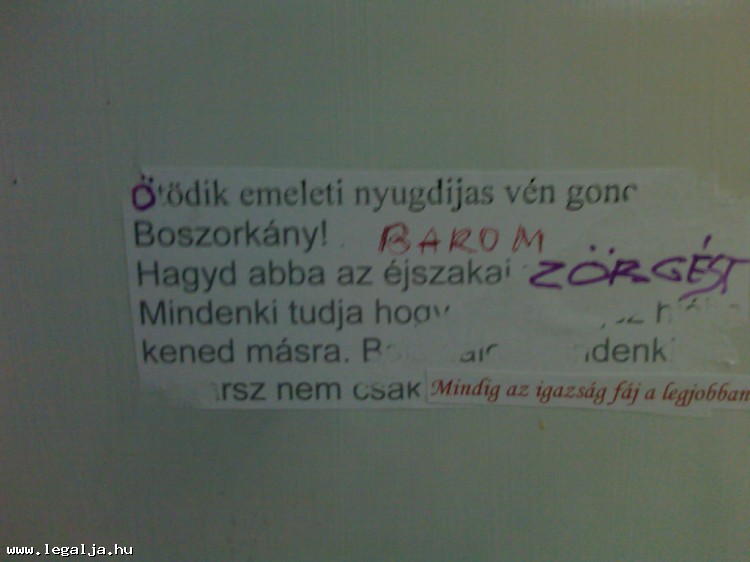 Ötödik emeleti nyugdijas vén gonc
Boszorkány! BAROM
Hagyd abba az éjszakai ZÖRGÉST
Mindenki tudja hogy
kened másra.
rsz nem csak Mindig az igazság fáj a legjobban
www.legalja.hu